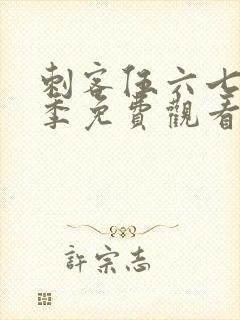 刺客伍六七
季免費觀看
許宗志